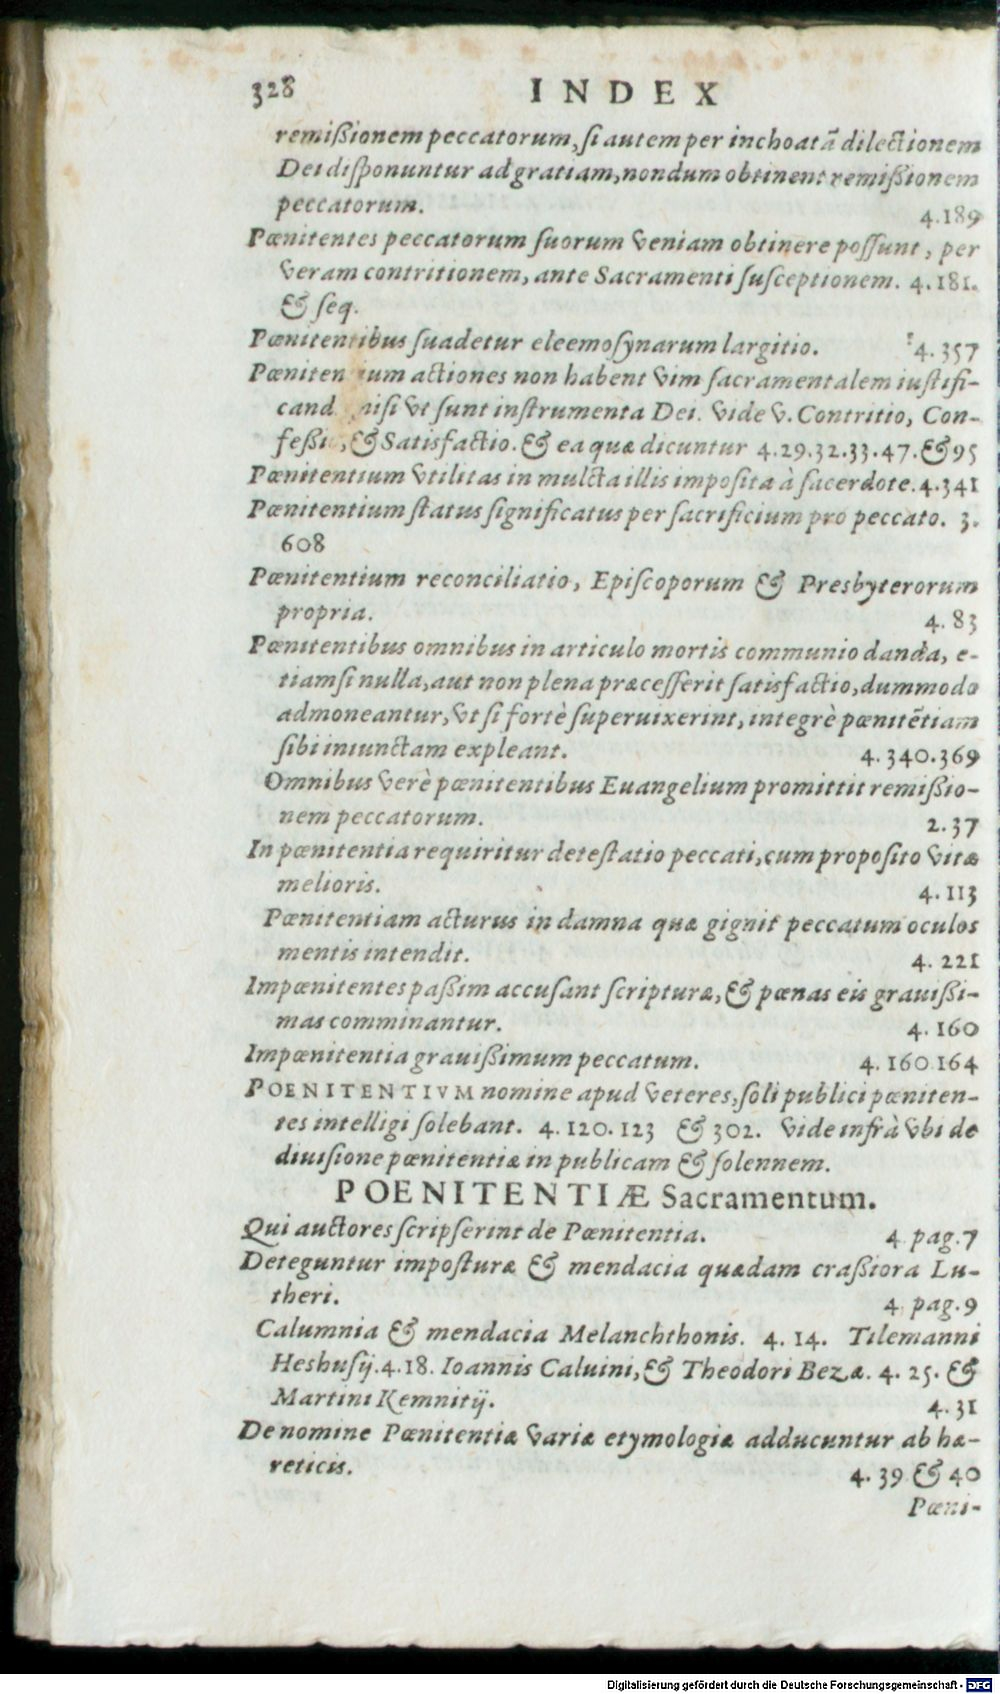 328 INDEX
remißionem peccatorum, si autem per inchoatã dilectionem
Dei disponuntur ad gratiam, nondum obtinent remißionem
peccatorum. 4.189
Pœnitentes peccatorum suorum veniam obtinere possunt, per
veram contritionem, ante Sacramenti susceptionem. 4.181.
& seq.
Pœnitentibus suadetur eleemosynarum largitio. 4.357
Pœniten ium actiones non habent vim sacramentalem iustifi-
cand nisi vt sunt instrumenta Dei. Vide V. Contritio, Con-
feßi , & Satisfactio. & ea quæ dicuntur 4.29.32.33.47.& 95
Pœnitentium vtilitas in mulcta illis imposita à sacerdote. 4.341
Pœnitentium status significatus per sacrificium pro peccato. 3.
608
Pœnitentium reconciliatio, Episcoporum & Presbyterorum
propria. 4.83
Pœnitentibus omnibus in articulo mortis communio danda, e-
tiamsi nulla, aut non plena præcesserit satisfactio, dummodo
admoneantur, vt si fortè superuixerint, integrè pœnitẽtiam
sibi iniunctam expleant. 4.340.369
Omnibus verè pœnitentibus Euangelium promittit remißio-
nem peccatorum. 2.37
In pœnitentia requiritur detestatio peccati, cum proposito vitæ
melioris. 4.113
Pœnitentiam acturus in damna quæ gignit peccatum oculos
mentis intendit. 4.221
Impœnitentes paßim accusant scripturæ, & pœnas eis grauißi-
mas comminantur. 4.160
Impœnitentia grauißimum peccatum. 4.160.164
POENITENTIVM nomine apud veteres, soli publici pœniten-
tes intelligi solebant. 4.120.123 & 302. Vide infrà vbi de
diuisione pœnitentiæ in publicam & solennem.
POENITENTIÆ Sacramentum.
Qui auctores scripserint de Pœnitentia. 4 pag.7
Deteguntur imposturæ & mendacia quædam craßiora Lu-
theri. 4. pag.9
Calumnia & mendacia Melanchthonis. 4.14. Tilemanni
Heshusij. 4.18. Ioannis Caluini, & Theodori Bezæ. 4.25. &
Martini Kemnitij. 4.31
De nomine Pœnitentiæ variæ etymologiæ adducuntur ab hæ-
reticis. 4.39 & 40
Pœni-
Digitalisierung gefördert durch die Deutsche Forschungsgemeinschaft - DFG